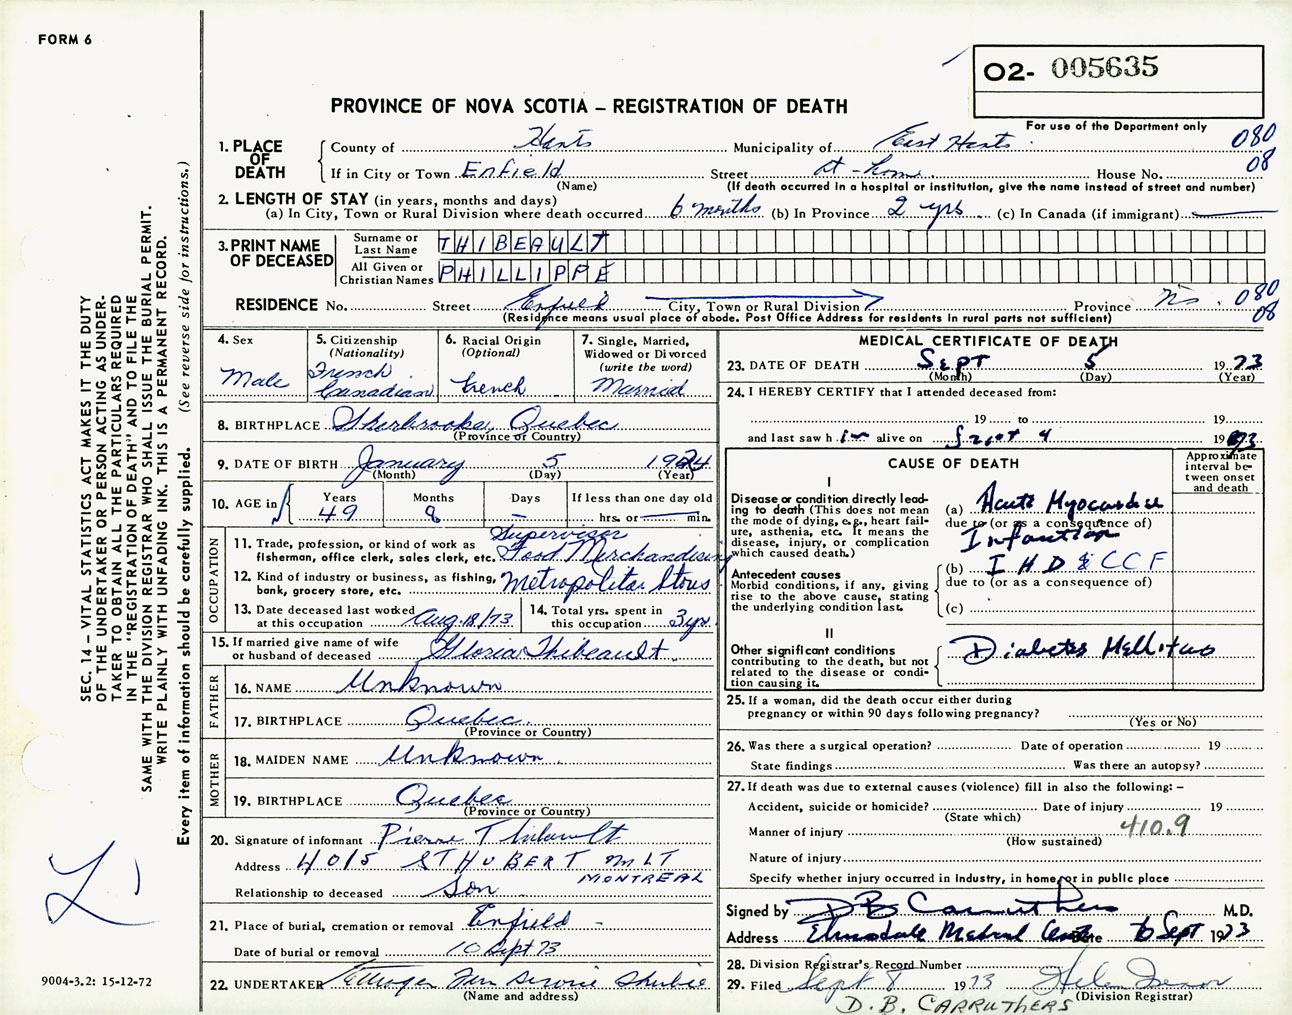 FORM 6
O2- 005635
For use of the Department only
PROVINCE OF NOVA SCOTIA – REGISTRATION OF DEATH
1. PLACE OF DEATH
County of Hants Municipality of East Hants 080
If in City or Town Enfield Street At-home House No. 08
(Name) (If death occurred in a hospital or institution, give the name instead of street and number)
2. LENGTH OF STAY (in years, months and days)
(a) In City, Town or Rural Division where death occurred 6 months (b) In Province 2 yrs (c) In Canada (if immigrant)
3. PRINT NAME OF DECEASED
Surname or Last Name THIBEAULT
All Given or Christian Names PHILLIPPE
RESIDENCE No. Street Enfield City, Town or Rural Division Province N.S. 080
(Residence means usual place of abode. Post Office Address for residents in rural parts not sufficient) 08
4. Sex
Male
5. Citizenship
(Nationality)
French
Canadian
6. Racial Origin
(Optional)
French
7. Single, Married,
Widowed or Divorced
(write the word)
Married
8. BIRTHPLACE Sherbrooke, Quebec
(Province or Country)
9. DATE OF BIRTH January 5 1924
(Month) (Day) (Year)
10. AGE in
Years Months Days If less than one day old
49 8 – hrs. or min.
OCCUPATION
11. Trade, profession, or kind of work as Supervisor
fisherman, office clerk, sales clerk, etc. Food Merchandising
12. Kind of industry or business, as fishing,
bank, grocery store, etc. Metropolitan Stores
13. Date deceased last worked
at this occupation Aug. 18/73
14. Total yrs. spent in
this occupation 3 yr.
15. If married give name of wife
or husband of deceased Gloria Thibeault
FATHER
16. NAME Unknown
17. BIRTHPLACE Quebec
(Province or Country)
MOTHER
18. MAIDEN NAME Unknown
19. BIRTHPLACE Quebec
(Province or Country)
20. Signature of informant Pierre Thibault
Address 4015 ST HUBERT MLT
MONTREAL
Relationship to deceased Son
21. Place of burial, cremation or removal Enfield
Date of burial or removal 10 Sept 73
22. UNDERTAKER
(Name and address)
MEDICAL CERTIFICATE OF DEATH
23. DATE OF DEATH Sept 5 1973
(Month) (Day) (Year)
24. I HEREBY CERTIFY that I attended deceased from:
19 to 19
and last saw him alive on Sept 4 1973
CAUSE OF DEATH
Approximate
interval be-
tween onset
and death
I
Disease or condition directly lead-
ing to death (This does not mean
the mode of dying, e.g., heart fail-
ure, asthenia, etc. It means the
disease, injury, or complication
which caused death.)
(a) Acute Myocardial
due to (or as a consequence of)
Infarction
Antecedent causes
Morbid conditions, if any, giving
rise to the above cause, stating
the underlying condition last.
(b) I H D & C C F
due to (or as a consequence of)
(c)
II
Other significant conditions
contributing to the death, but not
related to the disease or condi-
tion causing it.
Diabetes Mellitus
25. If a woman, did the death occur either during
pregnancy or within 90 days following pregnancy?
(Yes or No)
26. Was there a surgical operation? Date of operation 19
State findings Was there an autopsy?
27. If death was due to external causes (violence) fill in also the following: –
Accident, suicide or homicide? Date of injury 19
(State which)
410.9
Manner of injury
(How sustained)
Nature of injury
Specify whether injury occurred in industry, in home, or in public place
Signed by D B Carruthers M.D.
Address Elmsdale Medical Centre Date 6 Sept 1973
28. Division Registrar's Record Number
29. Filed Sept 8 1973 Helen
(Division Registrar)
D. B. CARRUTHERS
SEC. 14 – VITAL STATISTICS ACT MAKES IT THE DUTY
OF THE UNDERTAKER OR PERSON ACTING AS UNDER-
TAKER TO OBTAIN ALL THE PARTICULARS REQUIRED
IN THE "REGISTRATION OF DEATH" AND TO FILE THE
SAME WITH THE DIVISION REGISTRAR WHO SHALL ISSUE THE BURIAL PERMIT.
WRITE PLAINLY WITH UNFADING INK. THIS IS A PERMANENT RECORD.
Every item of information should be carefully supplied. (See reverse side for instructions.)
9004-3.2: 15-12-72